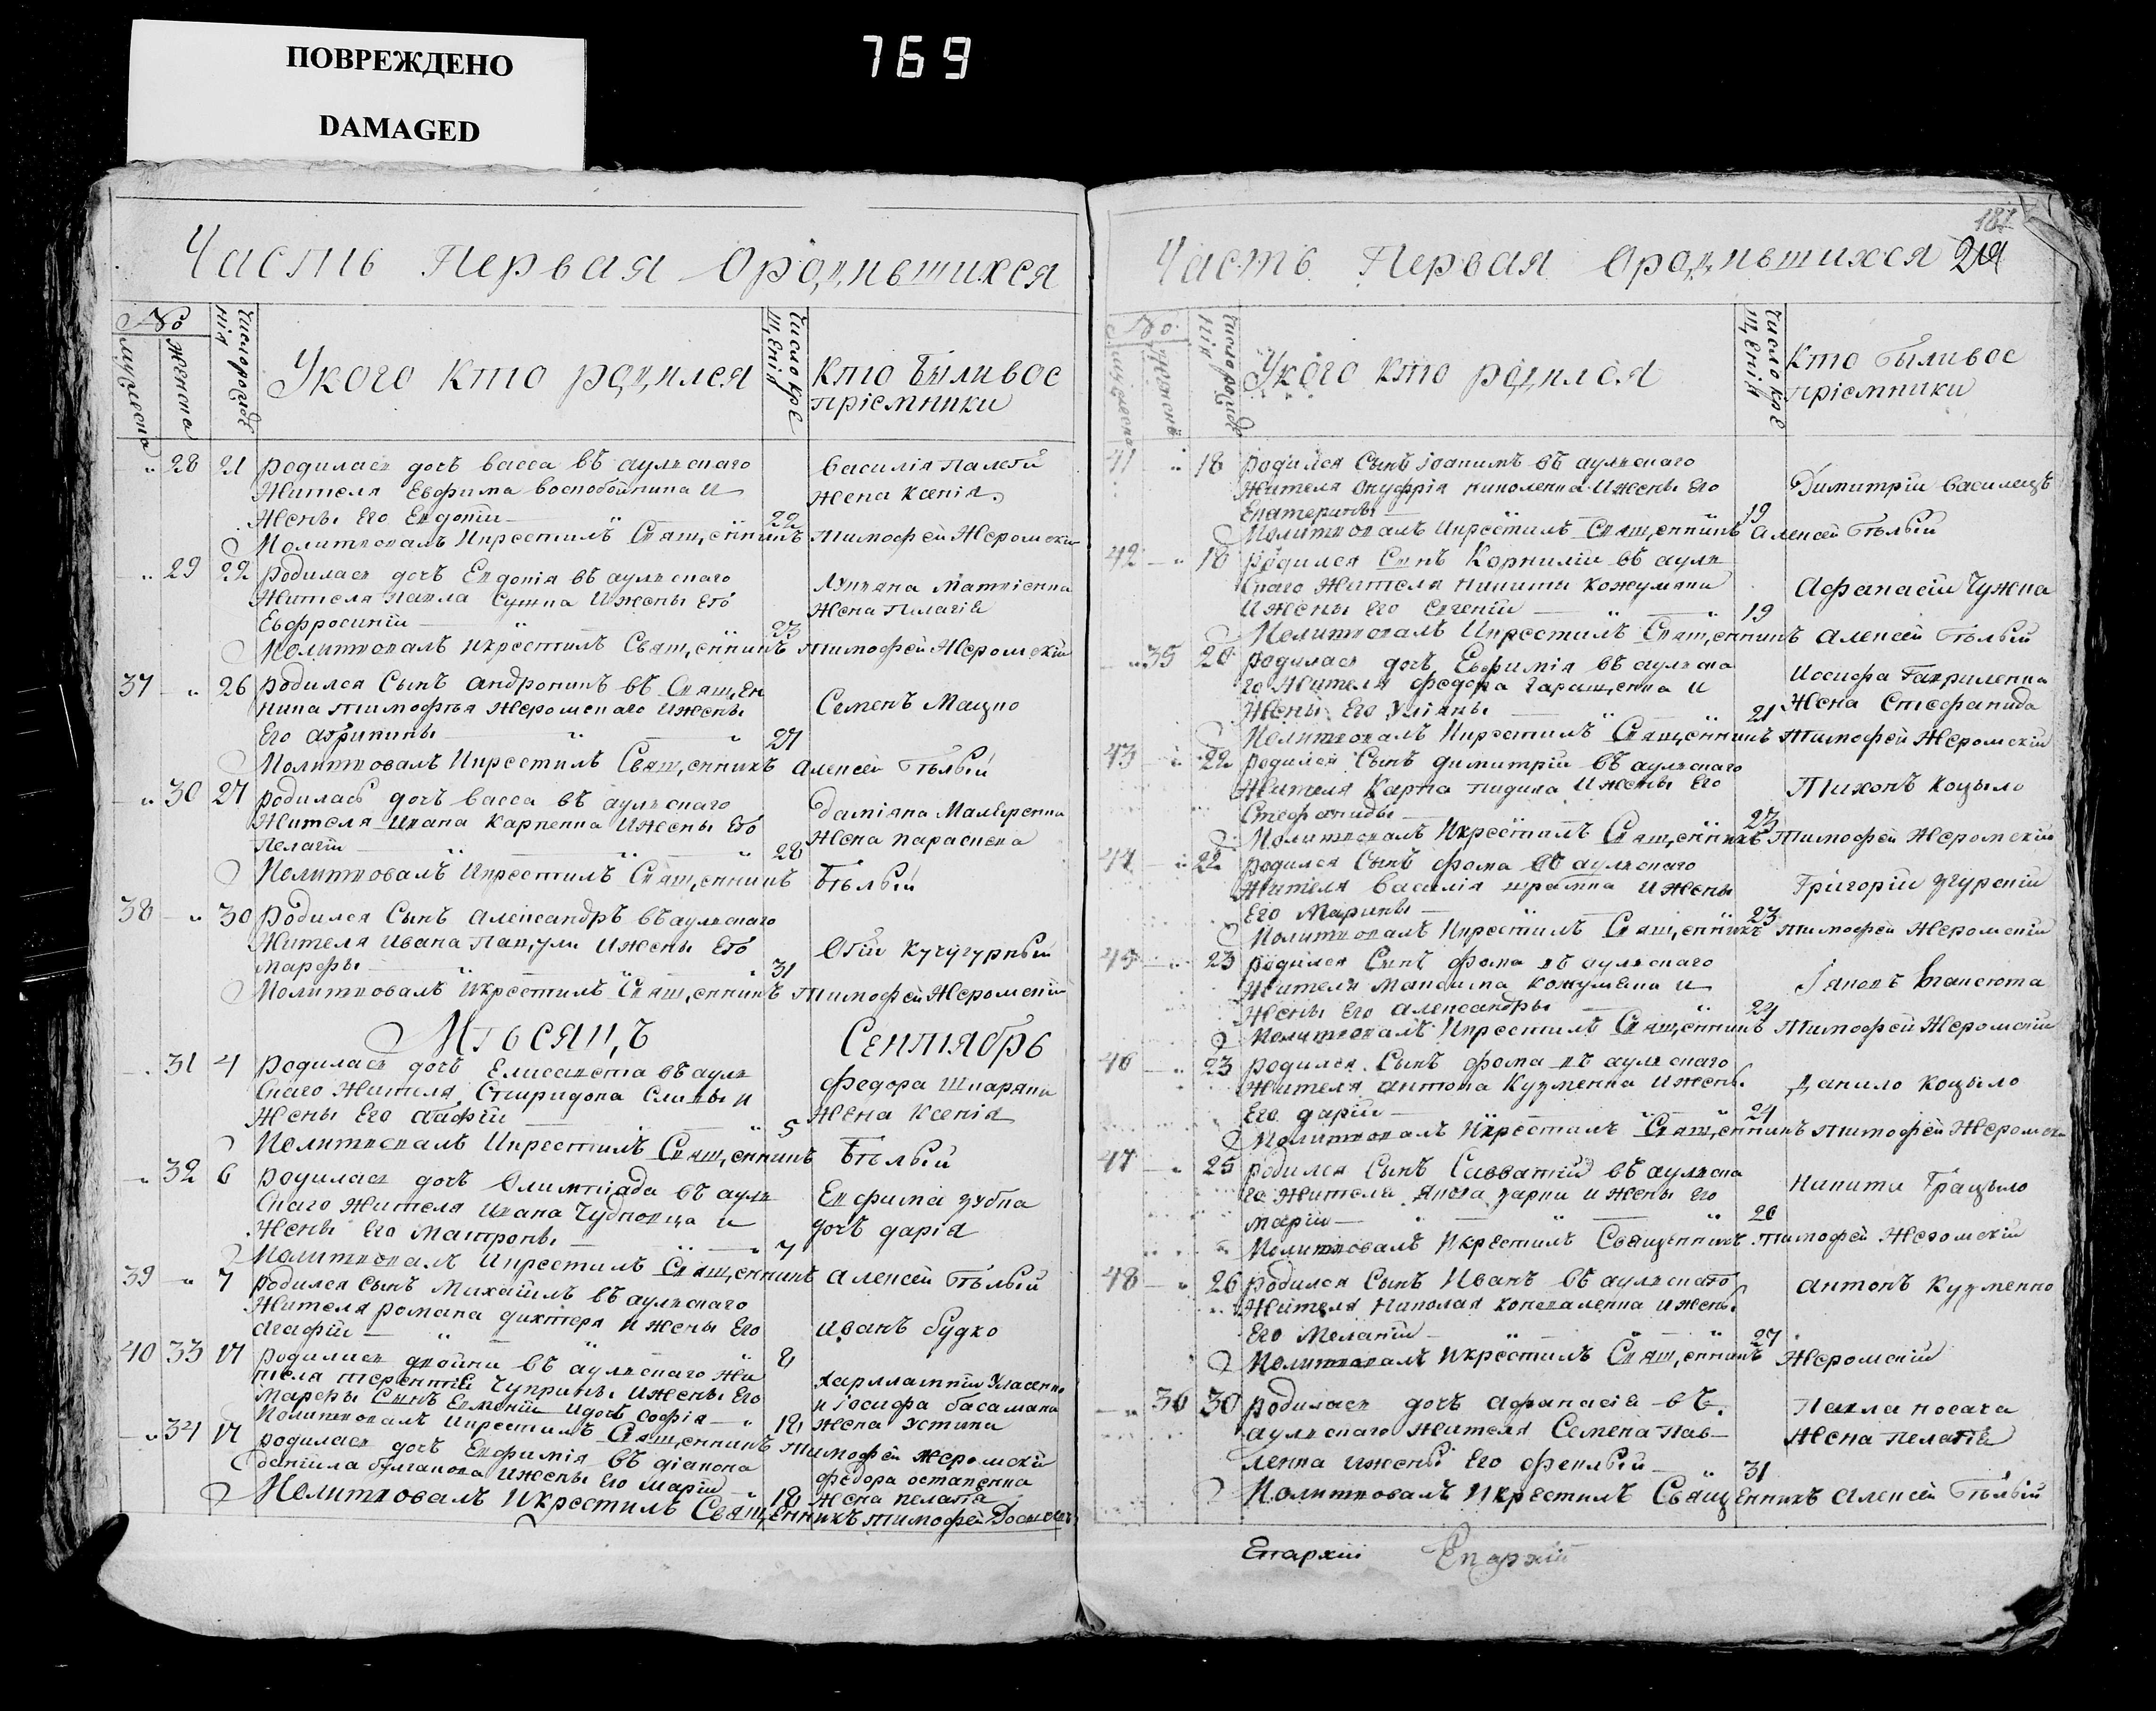 ПОВРЕЖДЕНО
DAMAGED
769
Часть Первая Ородившихся
№
мужеска
женска
Число рожде
нія
Укого кто родился
Число кре
щенія
Кто были вос
пріемники
28 21 родилась дочь васса въ аульскаго
Жителя Евфима воскобойника и
Жены Его Евдокіи 22
василія Палегы
Жена Ксенія
Молитвовалъ Икрестилъ Священникъ тимофей Жеромскій
29 22 родилась дочь Евдокія въ аульскаго
Жителя павла Сушка Ижены Его
Евфросиніи 23
Жена Пелагія
Молитвовалъ икрестилъ Священникъ тимофей Жеромскій
37 26 родился Сынъ андроникъ въ Священ
ника тимофея Жеромскаго Ижены
Его агрипины 27
Семенъ Мацко
Молитвовалъ Икрестилъ Священникъ Алексей Белый
30 27 родилась дочь васса въ аульскаго
Жителя Ивана Карпенка Ижены Его
Пелагіи 28
Даміана
Жена параскева
Молитвовалъ Икрестилъ Священникъ Бѣлый
38 30 Родился Сынъ александръ въ аульскаго
Жителя Ивана Ижены Его
марфы 31
Кучугурный
Молитвовалъ Икрестилъ Священникъ Тимофей Жеромскій
Мѣсяцъ Сентябрь
31 4 родилась дочь Елисавета въ ауль
скаго Жителя Спиридона Сливы и
Жены Его агафіи 5
федора
Жена Ксенія
Молитвовалъ Икрестилъ Священникъ Бѣлый
32 6 родилась дочь Олимпіада въ ауль
скаго Жителя Ивана Чудновца и
Жены Его матроны 7
Евфима зубка
дочь дарія
Молитвовалъ Икрестилъ Священникъ алексей Бѣлый
39 7 родился сынъ Михаилъ въ аульскаго
Жителя романа дихтера и жены Его
агафіи 8
иванъ Будко
40 33 17 родились двойни въ аульскаго Жи
теля терентія Чуприны Ижены Его
марфы Сынъ Евменій Идочь софія 18
харлампій Уласенко
и Іосифа басамана
Жена Устина
Молитвовалъ Икрестилъ Священникъ Тимофей Жеромскій
34 17 родилась дочь Евфимія въ діакона
даніила булгакова Ижены Его маріи 18
федора остапенка
Жена пелагія
Молитвовалъ Икрестилъ Священникъ тимофей
187
Часть Первая Ородившихся
№
мужеска
женска
Число рожде
нія
Укого кто родился
Число кре
щенія
Кто были вос
пріемники
41 18 родился Сынъ іоакимъ въ аульскаго
Жителя Онуфрія николенка Ижены Его
Екатерины 19
Димитрій василецъ
Молитвовалъ Икрестилъ Священникъ Алексей Бѣлый
42 18 родился Сынъ Корнилій въ ауль
скаго Жителя никиты кожумяки
Ижены Его Евгеніи 19
Афанасій Чужка
Молитвовалъ Икрестилъ Священникъ алексей Бѣлый
35 20 родилась дочь Евфимія въ аульска
го Жителя федора гаращенка и
Жены Его Уліяны 21
Иосифа Гавриленка
Жена Стефанида
Молитвовалъ Икрестилъ Священникъ Тимофей Жеромскій
43 22 родился Сынъ димитрій въ аульскаго
Жителя Карпа Ижены Его
Стефаниды 23
Тихонъ Коцыло
Молитвовалъ Икрестилъ Священникъ Тимофей Жеромскій
44 22 родился Сынъ фома въ аульскаго
Жителя василія шрамка Ижены
Его Марины 23
Григорій згурскій
Молитвовалъ Икрестилъ Священникъ тимофей Жеромскій
45 23 родился Сынъ фома въ аульскаго
Жителя максима кожумяки и
Жены Его александры 24
Молитвовалъ Икрестилъ Священникъ Тимофей Жеромскій
46 23 родился Сынъ фома въ аульскаго
Жителя антона Кузменка Ижены
Его даріи 24
данило коцыло
Молитвовалъ Икрестилъ Священникъ тимофей Жеромскій
47 25 родился Сынъ Савватій въ аульска
го Жителя Якова зарки и жены Его
маріи 26
Никита Грацыло
Молитвовалъ Икрестилъ Священникъ тимофей Жеромскій
48 26 родился Сынъ Иванъ въ аульскаго
Жителя Николая коноваленка ижены
Его Меланіи 27
антонъ Кузменко
Молитвовалъ Икрестилъ Священникъ Жеромскій
36 30 родилась дочь Афанасія въ
аульскаго жителя Семена пав
ленка ижены Его феклы 31
Павла носача
Жена пелагія
Молитвовалъ Икрестилъ Священникъ алексей Бѣлый
Епархіи Епархіи